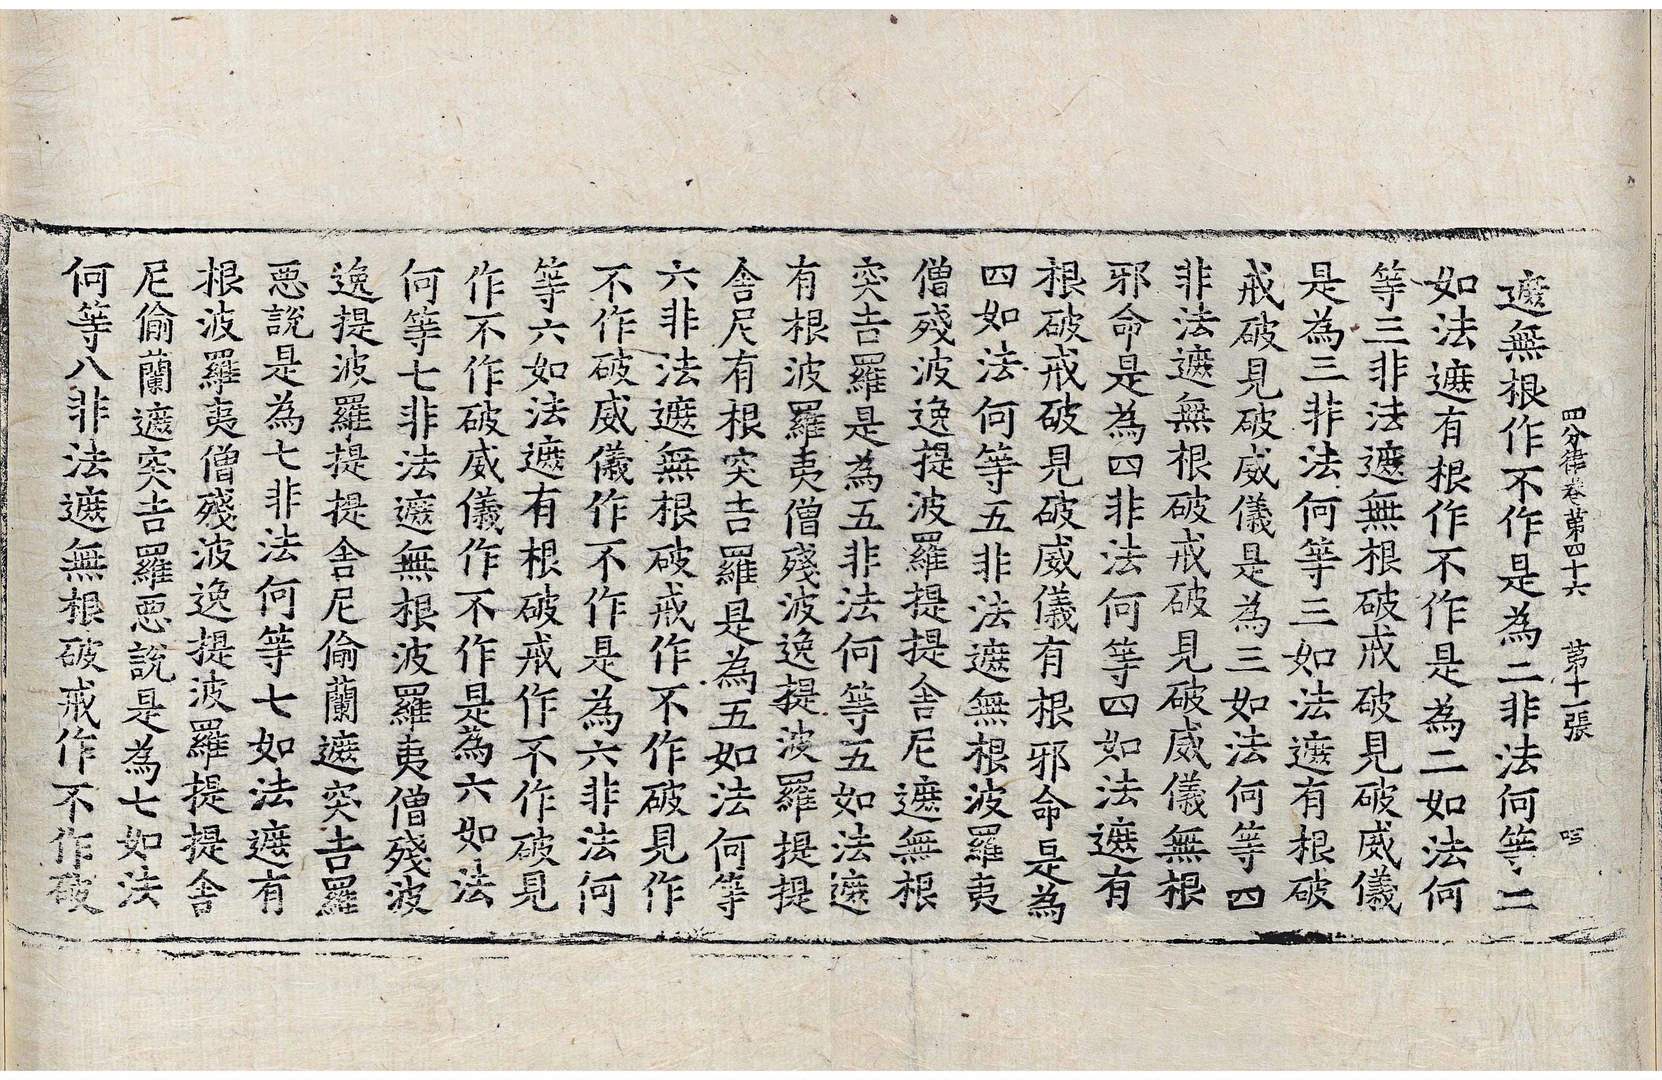 四分律卷第四十六 第十一張
遮無根作不作是為二非法何等二
如法遮有根作不作是為二如法何
等三非法遮無根破戒破見破威儀
是為三非法何等三如法遮有根破
戒破見破威儀是為三如法何等四
非法遮無根破戒破見破威儀無根
邪命是為四非法何等四如法遮有
根破戒破見破威儀有根邪命是為
四如法何等五非法遮無根波羅夷
僧殘波逸提波羅提提舍尼遮無根
突吉羅是為五非法何等五如法遮
有根波羅夷僧殘波逸提波羅提提
舍尼有根突吉羅是為五如法何等
六非法遮無根破戒作不作破見作
不作破威儀作不作是為六非法何
等六如法遮有根破戒作不作破見
作不作破威儀作不作是為六如法
何等七非法遮無根波羅夷僧殘波
逸提波羅提提舍尼偷蘭遮突吉羅
惡說是為七非法何等七如法遮有
根波羅夷僧殘波逸提波羅提提舍
尼偷蘭遮突吉羅惡說是為七如法
何等八非法遮無根破戒作不作破